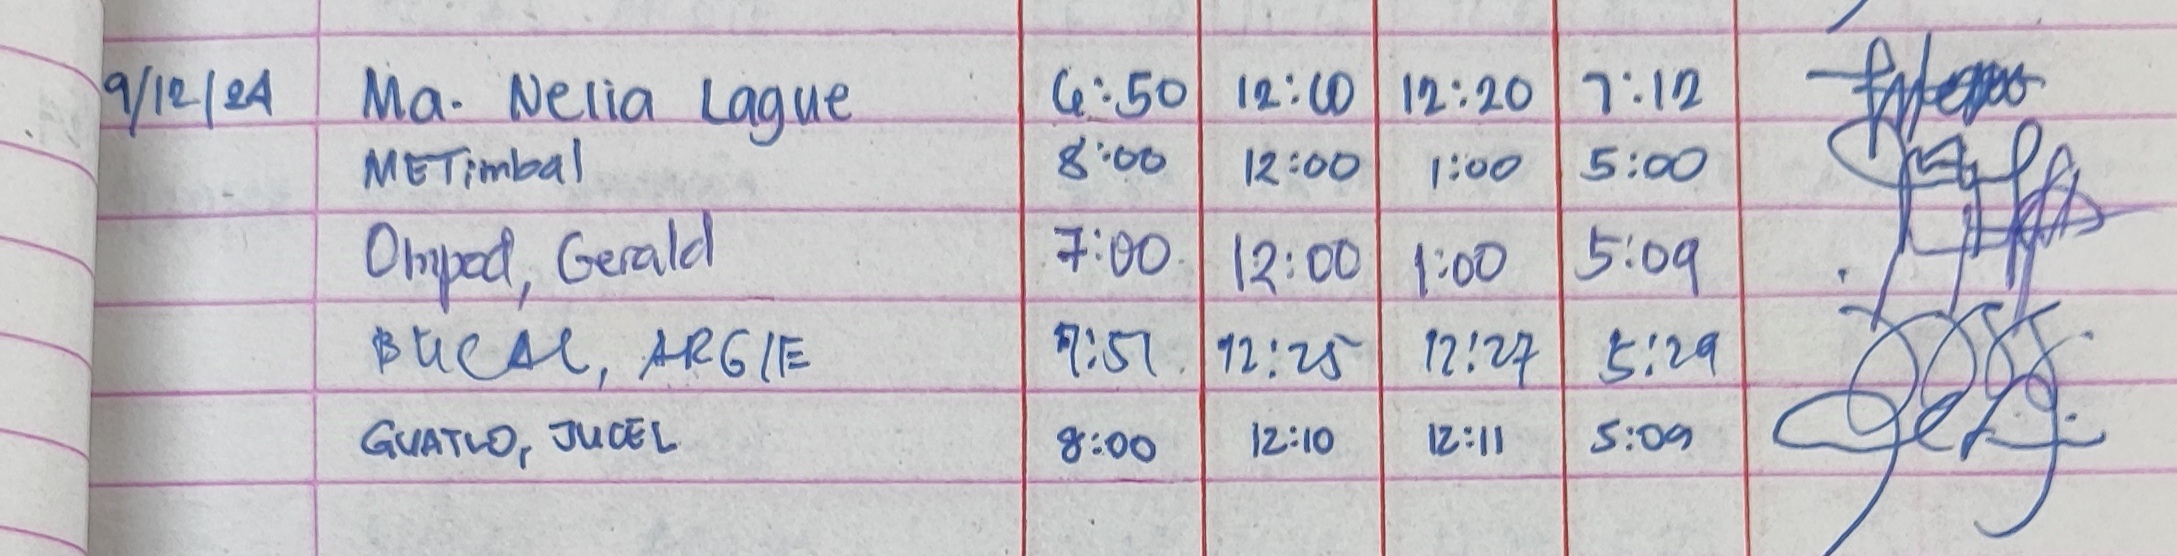 9/12/24 Ma. Nelia Lague 6:50 12:10 12:20 7:12
METimbal 8:00 12:00 1:00 5:00
Gerald 7:00 12:00 1:00 5:09
BUCAL, ARGIE 7:57 12:25 12:27 5:29
GUATLO, JUCEL 8:00 12:10 12:11 5:09